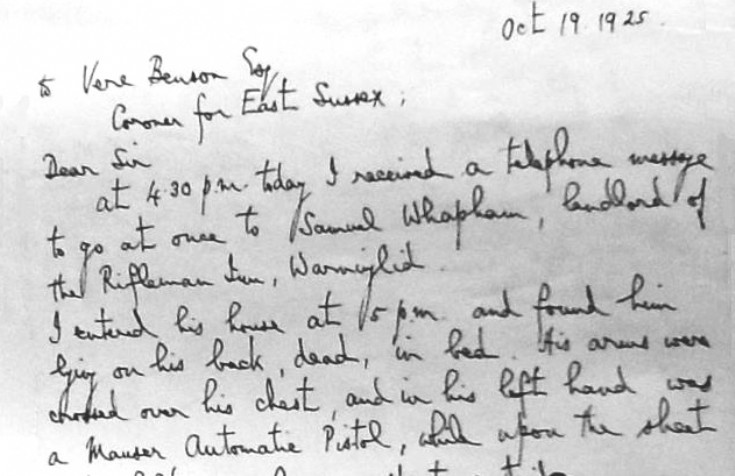 Oct 19. 1925.
to Vere Benson Esq
Coroner for East Sussex;
Dear Sir
at 4.30 p.m. today I received a telephone message
to go at once to Samuel Whapham, landlord of
the Rifleman Inn, Warninglid.
I entered his house at 5 p.m. and found him
lying on his back, dead, in bed. His arms were
crossed over his chest, and in his left hand was
a Mauser Automatic Pistol, while upon the sheet